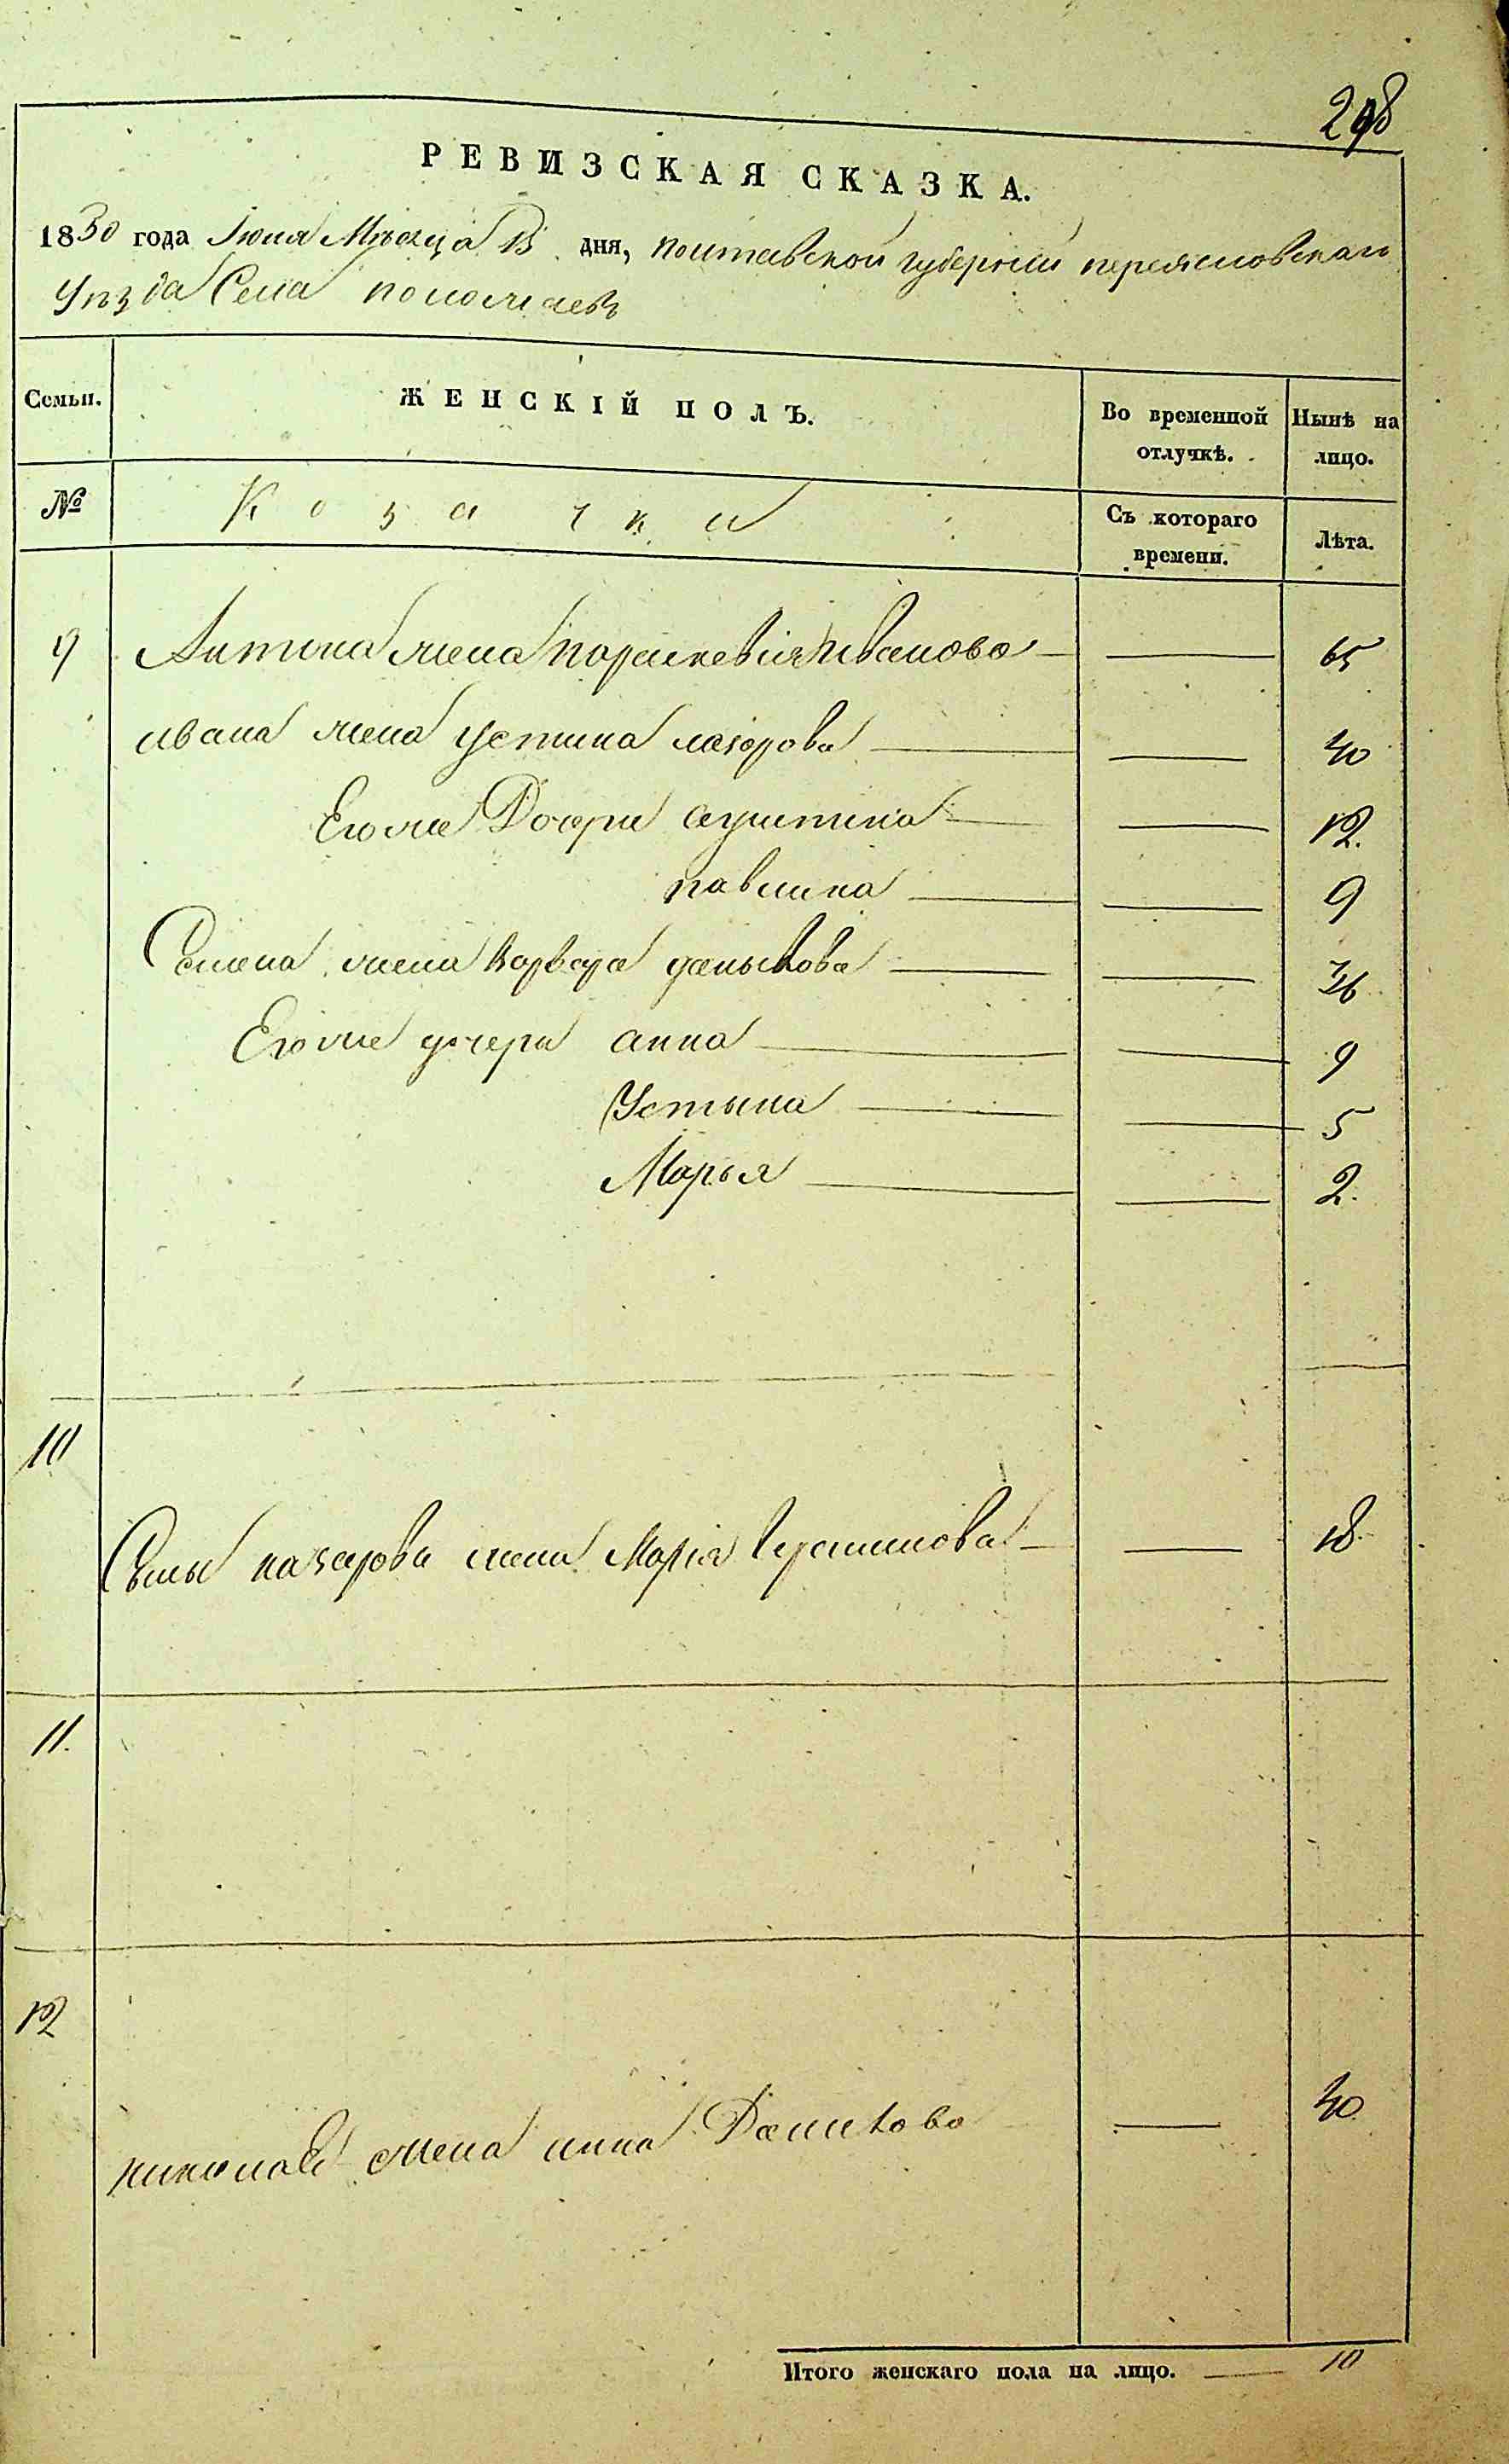 298
РЕВИЗСКАЯ СКАЗКА.
1830 года Июня Мѣсяца 13 дня, полтавской губернии переясловскаго
Уѣзда Села
Семьи. ЖЕНСКІЙ ПОЛЪ. Во временной отлучкѣ. Нынѣ на лицо.
№ Козачки Съ котораго времени. Лѣта.
9 Антина жена параскевия Иванова — — 65
ивана жена устина лазорова — — 40
Его же Дочери агриптина — — 12.
павлина — — 9
Семена жена Варвара данылова — — 36
Его же дочери анна — — 9
Устына — — 5
Марья — — 2.
10
назарова жена Мария герасимова — — 18
11.
12
николая жена анна Данилова — 40
Итого женскаго пола на лицо. — 10